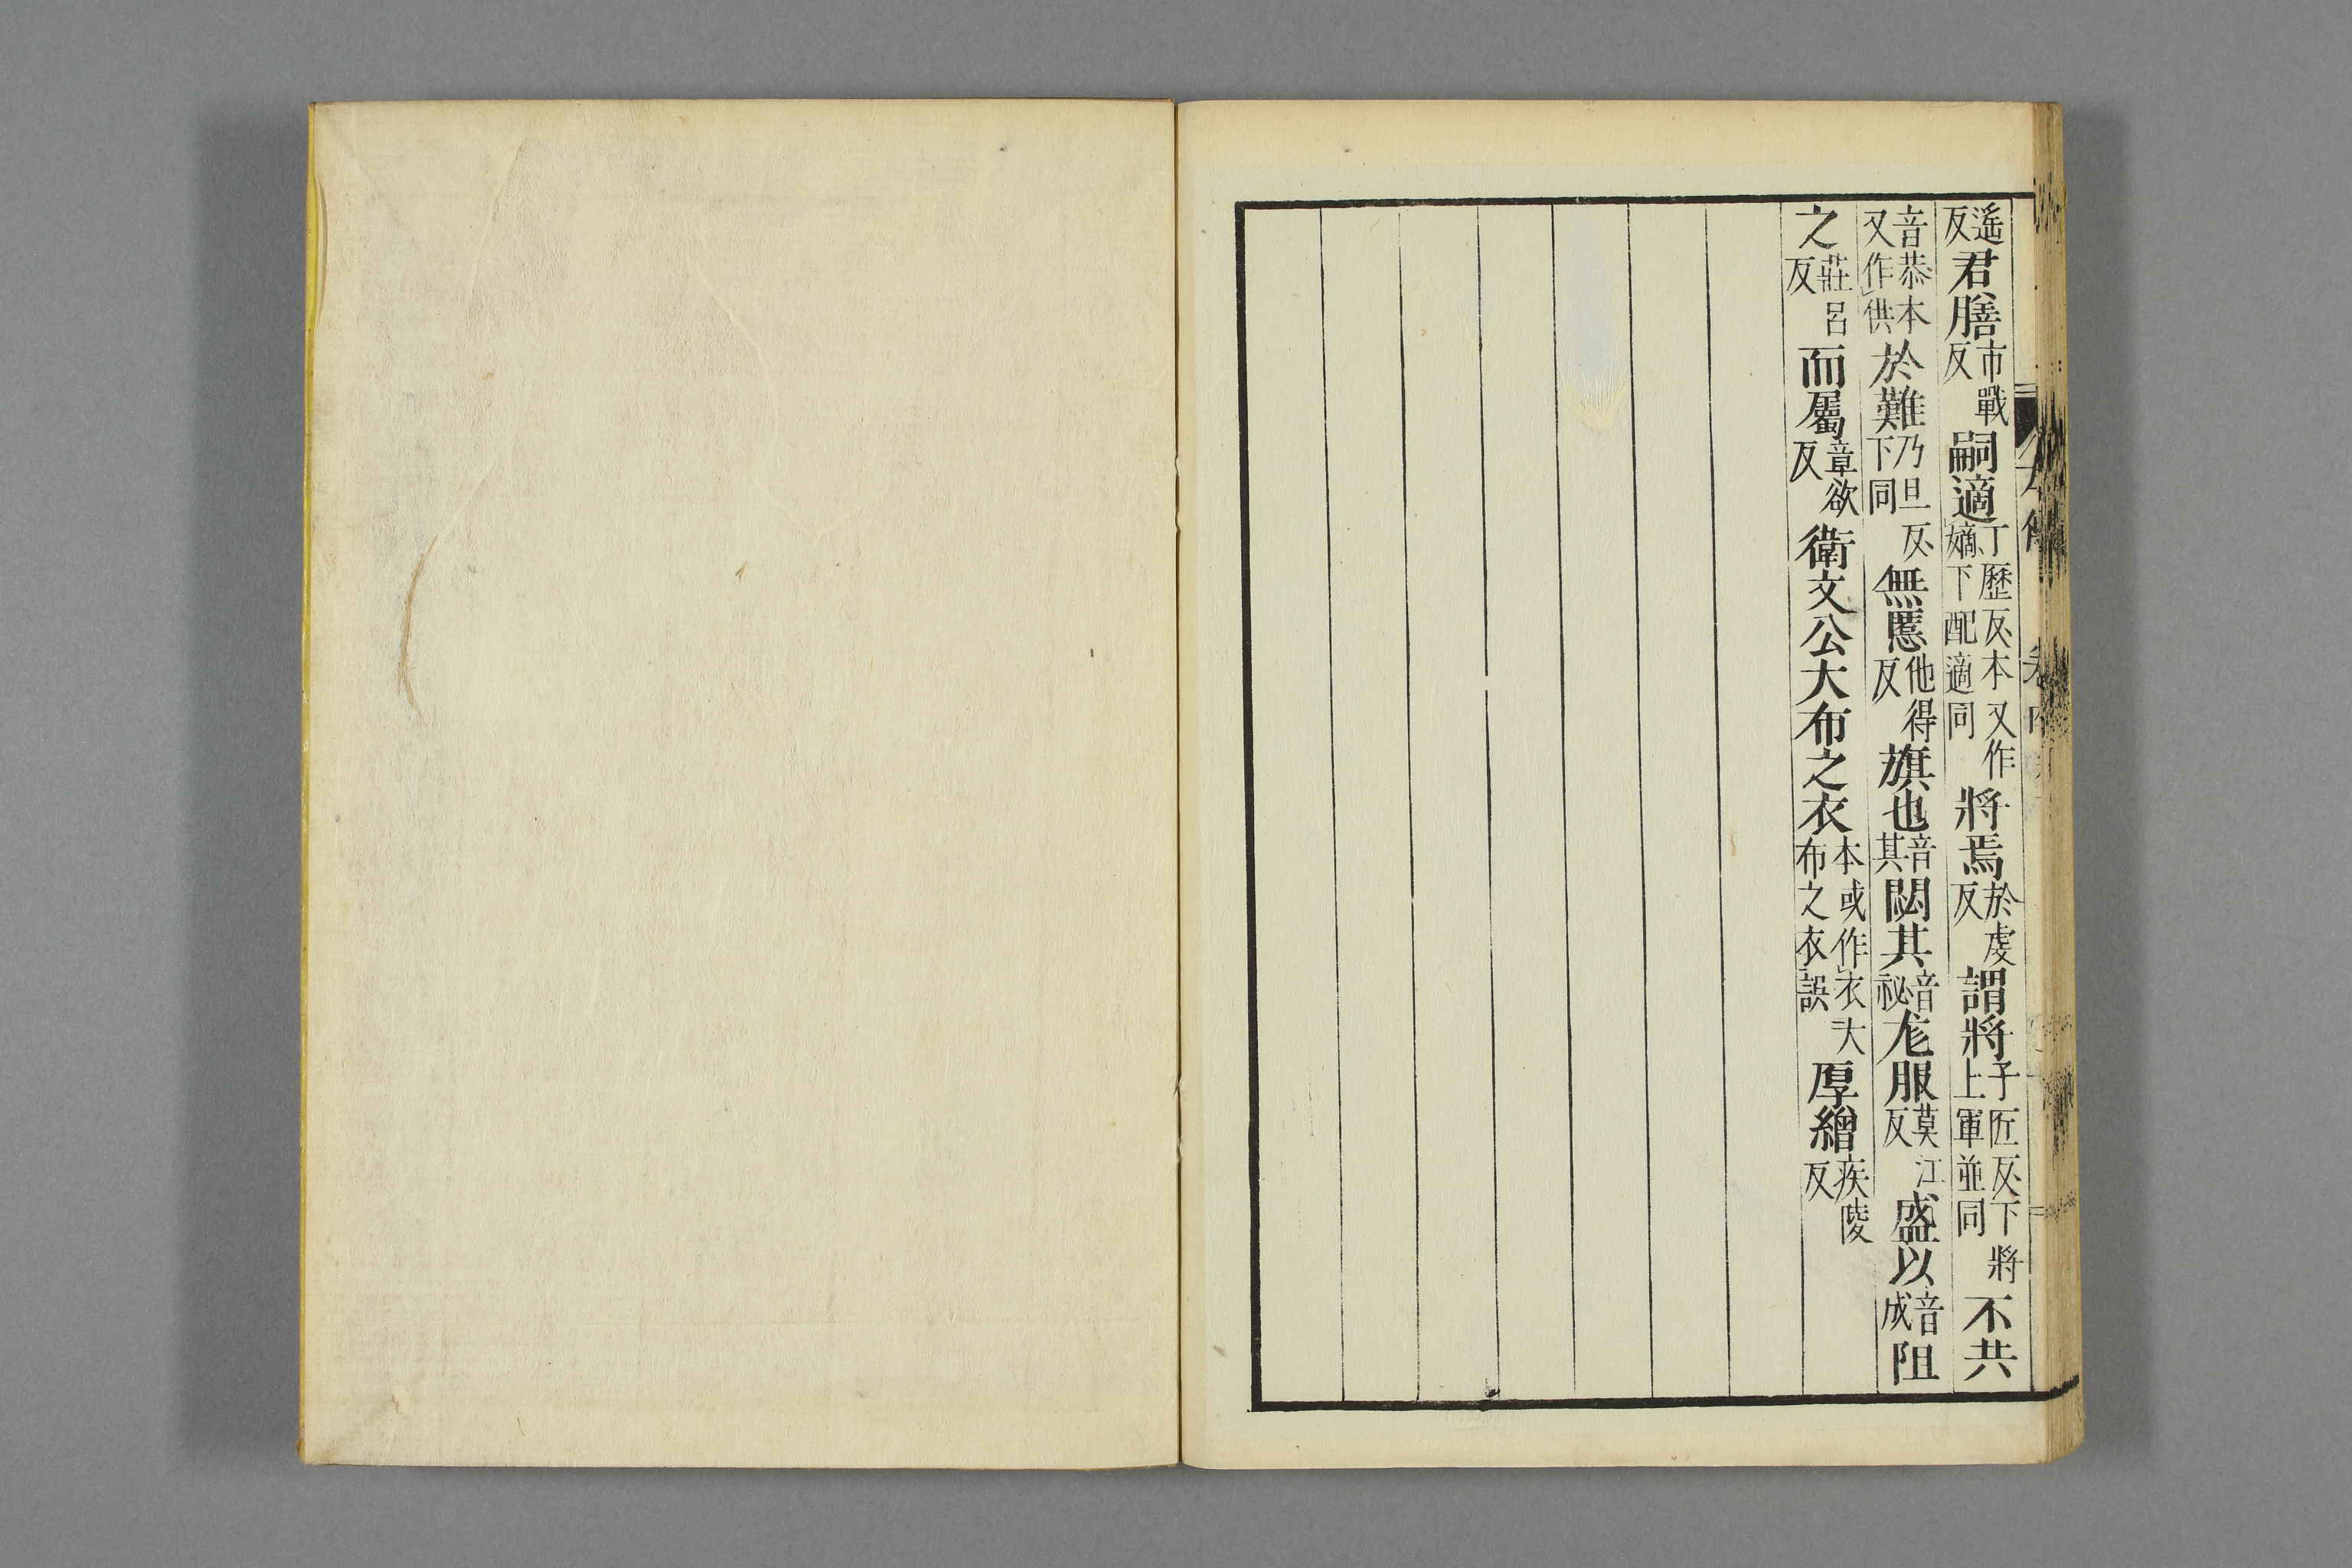 遙反君膳市戰反嗣適丁歷反本又作嫡下配適同將焉於虔反謂將子匠反下將上軍並同不共
音恭本又作供於難乃旦反下同無慝他得反旗也音其閟其音祕尨服莫江反盛以音成阻
之莊呂反而屬章欲反衛文公大布之衣本或作衣大布之衣誤厚繒疾陵反